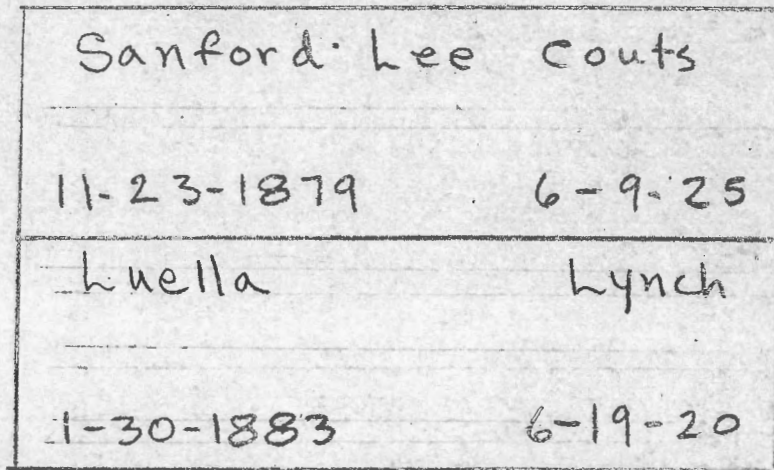 Sanford Lee Couts
11-23-1879 6-9-25
Luella Lynch
1-30-1883 6-19-20